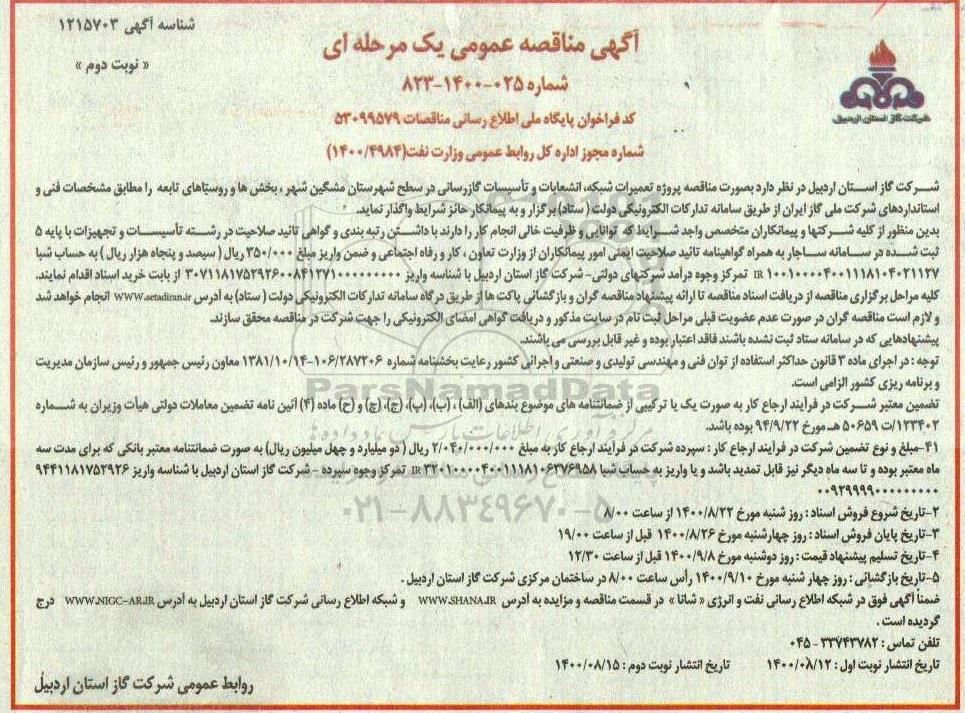 شناسه آگهی ۱۲۱۵۷۰۳
« نوبت دوم »
آگهی مناقصه عمومی یک مرحله ای
شماره ۰۲۵-۱۴۰۰-۸۲۳
کد فراخوان پایگاه ملی اطلاع رسانی مناقصات ۵۳۰۹۹۵۷۹
شماره مجوز اداره کل روابط عمومی وزارت نفت(۱۴۰۰/۴۹۸۴)
شرکت گاز استان اردبیل
شرکت گاز استان اردبیل در نظر دارد بصورت مناقصه پروژه تعمیرات شبکه، انشعابات و تأسیسات گازرسانی در سطح شهرستان مشگین شهر ، بخش ها و روستاهای تابعه را مطابق مشخصات فنی و
استانداردهای شرکت ملی گاز ایران از طریق سامانه تدارکات الکترونیکی دولت ( ستاد) برگزار و به پیمانکار حائز شرایط واگذار نماید.
بدین منظور از کلیه شرکتها و پیمانکاران متخصص واجد شرایط که توانایی و ظرفیت خالی انجام کار را دارند با داشتن رتبه بندی و گواهی تائید صلاحیت در رشته تأسیسات و تجهیزات با پایه ۵
ثبت شده در سامانه ساجار به همراه گواهینامه تائید صلاحیت ایمنی امور پیمانکاران از وزارت تعاون ، کار و رفاه اجتماعی و ضمن واریز مبلغ ۳۵۰/۰۰۰ ریال ( سیصد و پنجاه هزار ریال ) به حساب شبا
IR ۱۰۰۱۰۰۰۰۴۰۰۱۱۱۸۱۰۴۰۲۱۱۲۷ تمرکز وجوه درآمد شرکتهای دولتی– شرکت گاز استان اردبیل با شناسه واریز ۳۰۷۱۱۸۱۷۵۲۹۲۶۰۰۸۴۱۲۷۱۰۰۰۰۰۰۰۰۰۰ از بابت خرید اسناد اقدام نمایند.
کلیه مراحل برگزاری مناقصه از دریافت اسناد مناقصه تا ارائه پیشنهاد مناقصه گران و بازگشائی پاکت ها از طریق درگاه سامانه تدارکات الکترونیکی دولت ( ستاد) به آدرس www.setadiran.ir انجام خواهد شد
و لازم است مناقصه گران در صورت عدم عضویت قبلی مراحل ثبت نام در سایت مذکور و دریافت گواهی امضای الکترونیکی را جهت شرکت در مناقصه محقق سازند.
پیشنهادهایی که در سامانه ستاد ثبت نشده باشند فاقد اعتبار بوده و غیر قابل بررسی می باشند.
توجه : در اجرای ماده ۳ قانون حداکثر استفاده از توان فنی و مهندسی تولیدی و صنعتی و اجرائی کشور رعایت بخشنامه شماره ۱۰۶/۲۸۷۲۰۶-۱۳۸۱/۱۰/۱۴ معاون رئیس جمهور و رئیس سازمان مدیریت
و برنامه ریزی کشور الزامی است.
تضمین معتبر شرکت در فرآیند ارجاع کار به صورت یک یا ترکیبی از ضمانتنامه های موضوع بندهای (الف) ، (ب)، (پ)، (ج)، (چ) و (ح) ماده (۴) آئین نامه تضمین معاملات دولتی هیأت وزیران به شماره
۱۲۳۴۰۲/ت ۵۰۶۵۹ هـ مورخ ۹۴/۹/۲۲ بوده باشد.
۴۱-مبلغ و نوع تضمین شرکت در فرآیند ارجاع کار : سپرده شرکت در فرآیند ارجاع کار به مبلغ ۲/۰۴۰/۰۰۰/۰۰۰ ریال ( دو میلیارد و چهل میلیون ریال) به صورت ضمانتنامه معتبر بانکی که برای مدت سه
ماه معتبر بوده و تا سه ماه دیگر نیز قابل تمدید باشد و یا واریز به حساب شبا IR ۳۲۰۱۰۰۰۰۴۰۰۱۱۱۸۱۰۶۳۷۶۹۵۸ تمرکز وجوه سپرده – شرکت گاز استان اردبیل با شناسه واریز ۹۴۴۱۱۸۱۷۵۲۹۲۶
۰۰۹۲۹۹۹۹۰۰۰۰۰۰۰۰۰
۲-تاریخ شروع فروش اسناد : روز شنبه مورخ ۱۴۰۰/۸/۲۲ از ساعت ۸/۰۰
۳-تاریخ پایان فروش اسناد : روز چهارشنبه مورخ ۱۴۰۰/۸/۲۶ قبل از ساعت ۱۹/۰۰
۴-تاریخ تسلیم پیشنهاد قیمت : روز دوشنبه مورخ ۱۴۰۰/۹/۸ قبل از ساعت ۱۲/۳۰
۵-تاریخ بازگشائی : روز چهار شنبه مورخ ۱۴۰۰/۹/۱۰ رأس ساعت ۸/۰۰ در ساختمان مرکزی شرکت گاز استان اردبیل .
ضمناً آگهی فوق در شبکه اطلاع رسانی نفت و انرژی « شانا » در قسمت مناقصه و مزایده به آدرس WWW.SHANA.IR و شبکه اطلاع رسانی شرکت گاز استان اردبیل به آدرس WWW.NIGC-AR.IR درج
گردیده است .
تلفن تماس : ۳۳۷۴۳۷۸۲ - ۰۴۵
تاریخ انتشار نوبت اول : ۱۴۰۰/۰۸/۱۲ تاریخ انتشار نوبت دوم : ۱۴۰۰/۰۸/۱۵
روابط عمومی شرکت گاز استان اردبیل
ParsNamadData
۰۲۱-۸۸۳۴۹۶۷۰-۵